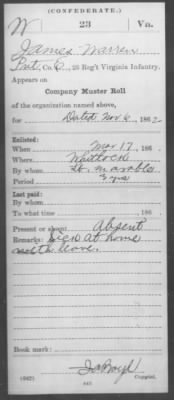 (CONFEDERATE.)
W 23 Va.
James Warren
Pvt, Co. C, 23 Reg't Virginia Infantry.
Appears on
Company Muster Roll
of the organization named above,
for Dated Nov 6, 1862
Enlisted:
When Mar 17, 186
Where
By whom Lt. Marable
Period 3 yrs
Last paid:
By whom
To what time , 186
Present or absent Absent
Remarks: Sick at home
with leave.
Book mark:
(642) Copyist.